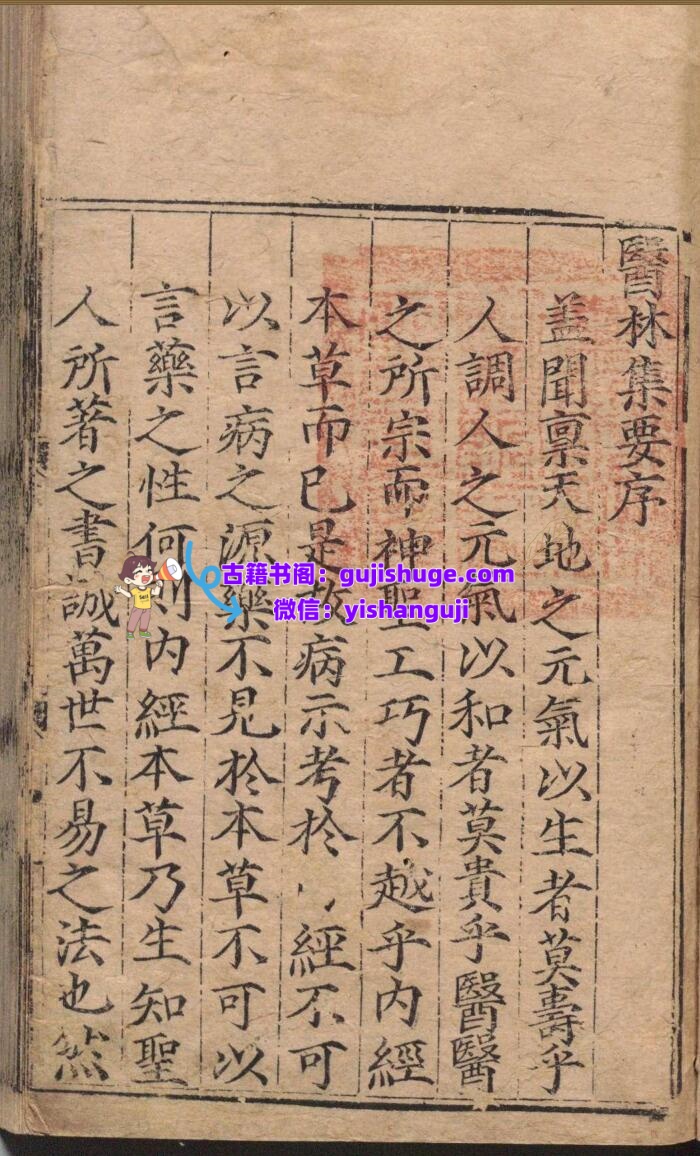 醫林集要序
盖聞稟天地之元氣以生者莫壽乎
人調人之元氣以和者莫貴乎醫醫
之所宗而神聖工巧者不越乎内經
本草而已是故病示考於經不可
以言病之源藥不見於本草不可以
言藥之性何則内經本草乃生知聖
人所著之書誠萬世不易之法也然
古籍书阁：gujishuge.com
微信：yishanguji